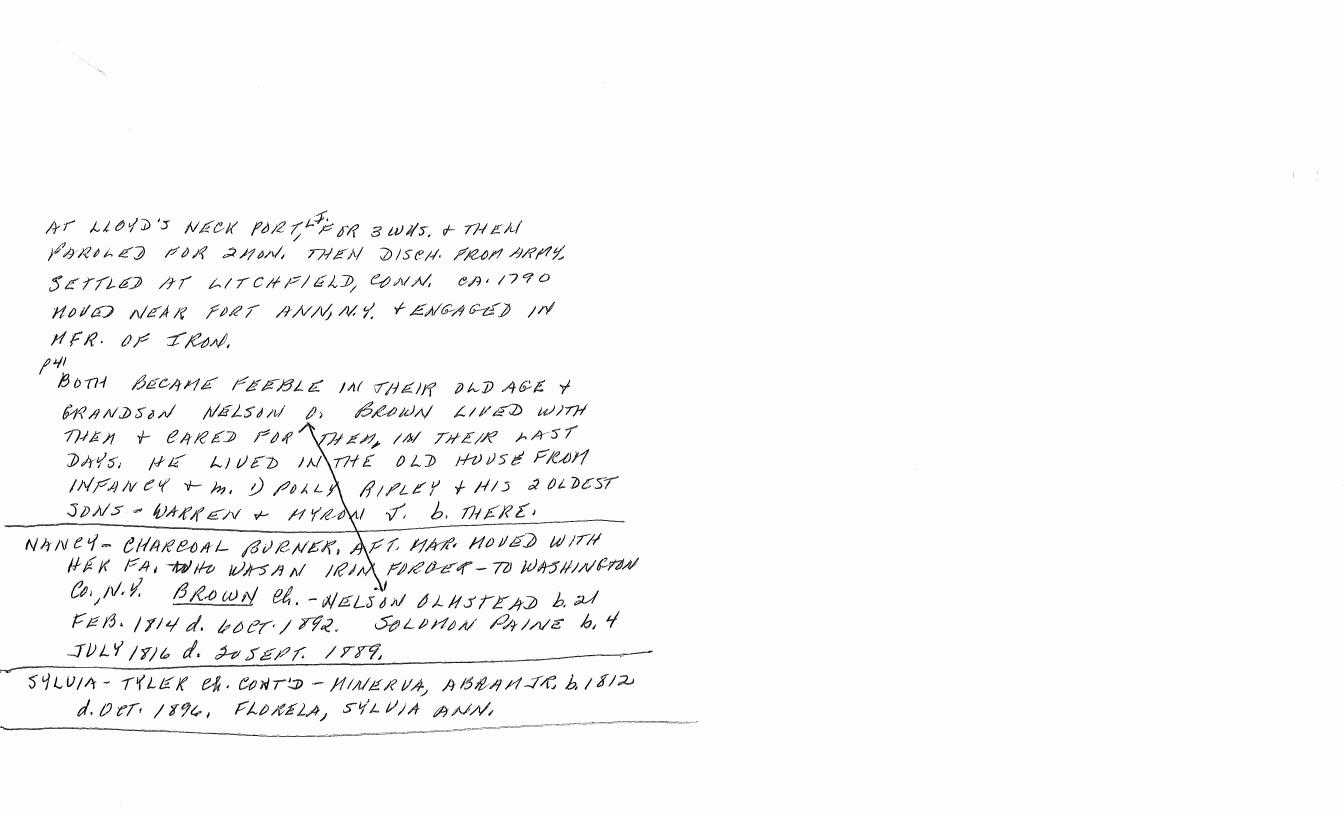 AT LLOYD'S NECK PORT, L.I. FOR 3 WKS. + THEN
PAROLED FOR 2 MON. THEN DISCH. FROM ARMY.
SETTLED AT LITCHFIELD, CONN. CA. 1790
MOVED NEAR FORT ANN, N.Y. + ENGAGED IN
MFR. OF IRON.
P41
BOTH BECAME FEEBLE IN THEIR OLD AGE +
GRANDSON NELSON O. BROWN LIVED WITH
THEM + CARED FOR THEM, IN THEIR LAST
DAYS. HE LIVED IN THE OLD HOUSE FROM
INFANCY + m. 1) POLLY RIPLEY + HIS 2 OLDEST
SONS - WARREN + MYRON J. b. THERE.
NANCY - CHARCOAL BURNER. AFT. MAR. MOVED WITH
HER FA. WHO WAS AN IRON FORGER - TO WASHINGTON
CO., N.Y. BROWN Ch. - NELSON OLMSTEAD b. 21
FEB. 1814 d. 6 OCT. 1892. SOLOMON PAINE b. 4
JULY 1816 d. 20 SEPT. 1889.
SYLVIA - TYLER Ch. CONT'D - MINERVA, ABRAM JR. b. 1812
d. OCT. 1896, FLORELA, SYLVIA ANN.